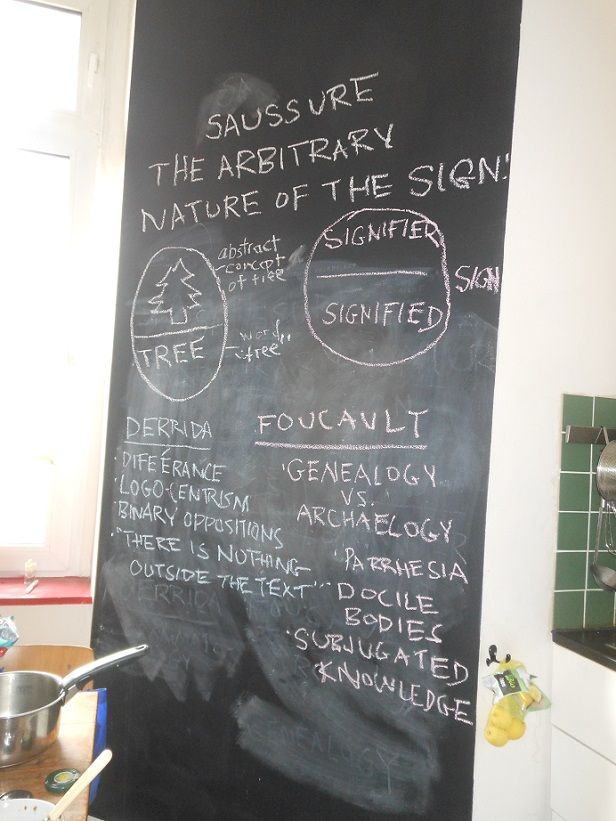 SAUSSURE
THE ARBITRARY
NATURE OF THE SIGN!
abstract
concept
of tree
TREE
word
"tree"
SIGNIFIER
SIGNIFIED
SIGN
DERRIDA
·DIFEÉRANCE
·LOGO-CENTRISM
·BINARY OPPOSITIONS
·"THERE IS NOTHING
OUTSIDE THE TEXT"
FOUCAULT
·GENEALOGY
VS.
ARCHAELOGY
·PARRHESIA
·DOCILE
BODIES
·SUBJUGATED
KNOWLEDGE
DERRIDA
GENEALOGY